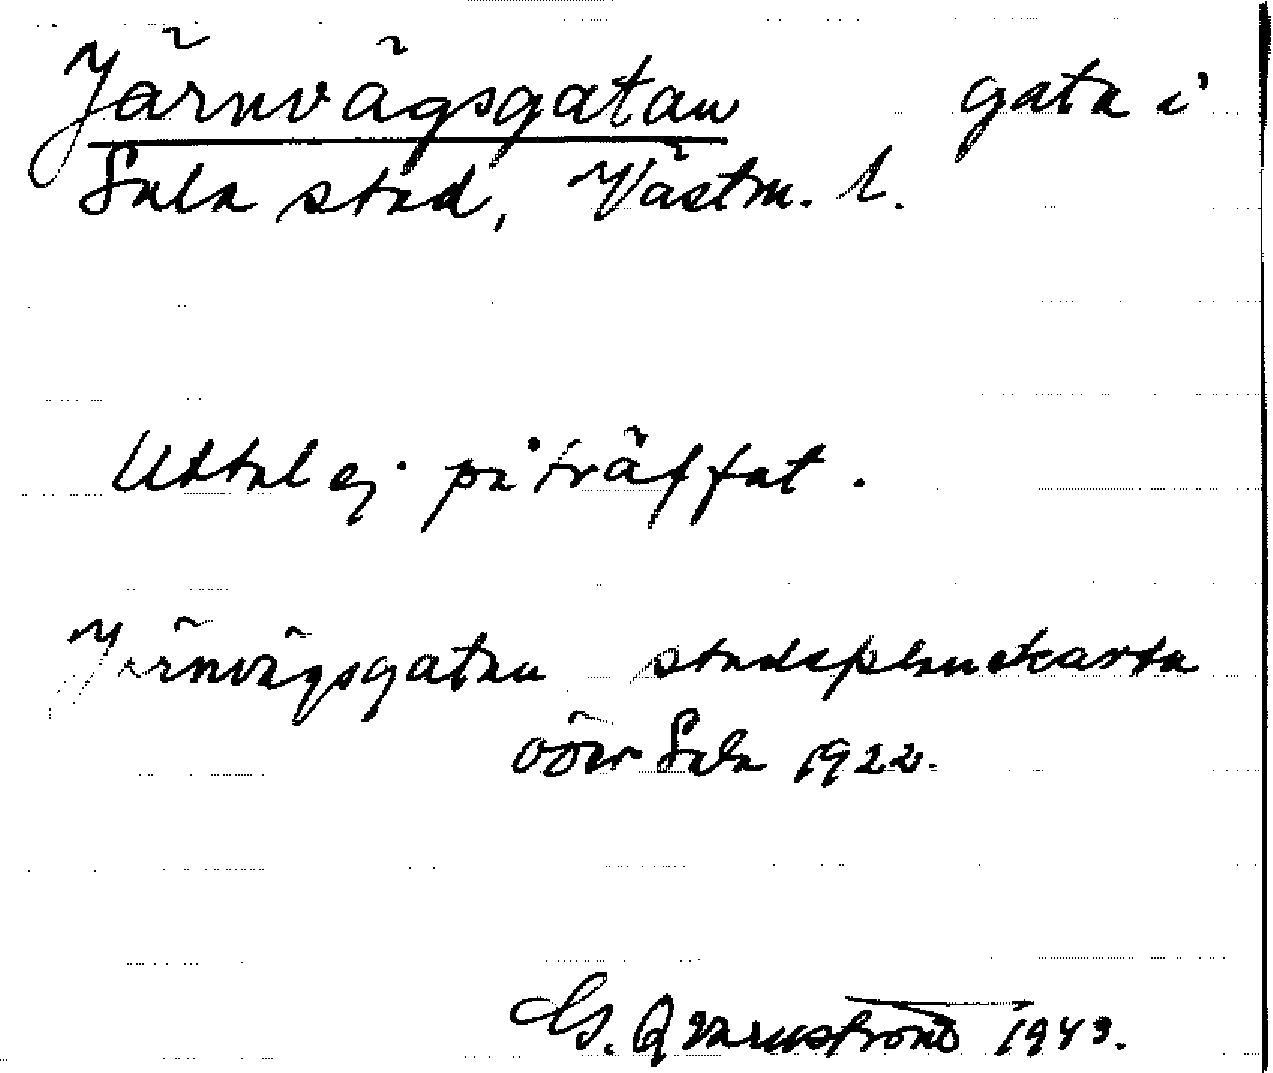 Järnvägsgatan gata i
Sala stad, Västm. l.
Uttal ej påträffat.
Järnvägsgatan stadsplanekarta
över Sala 1922.
G. Qvarnström 1943.